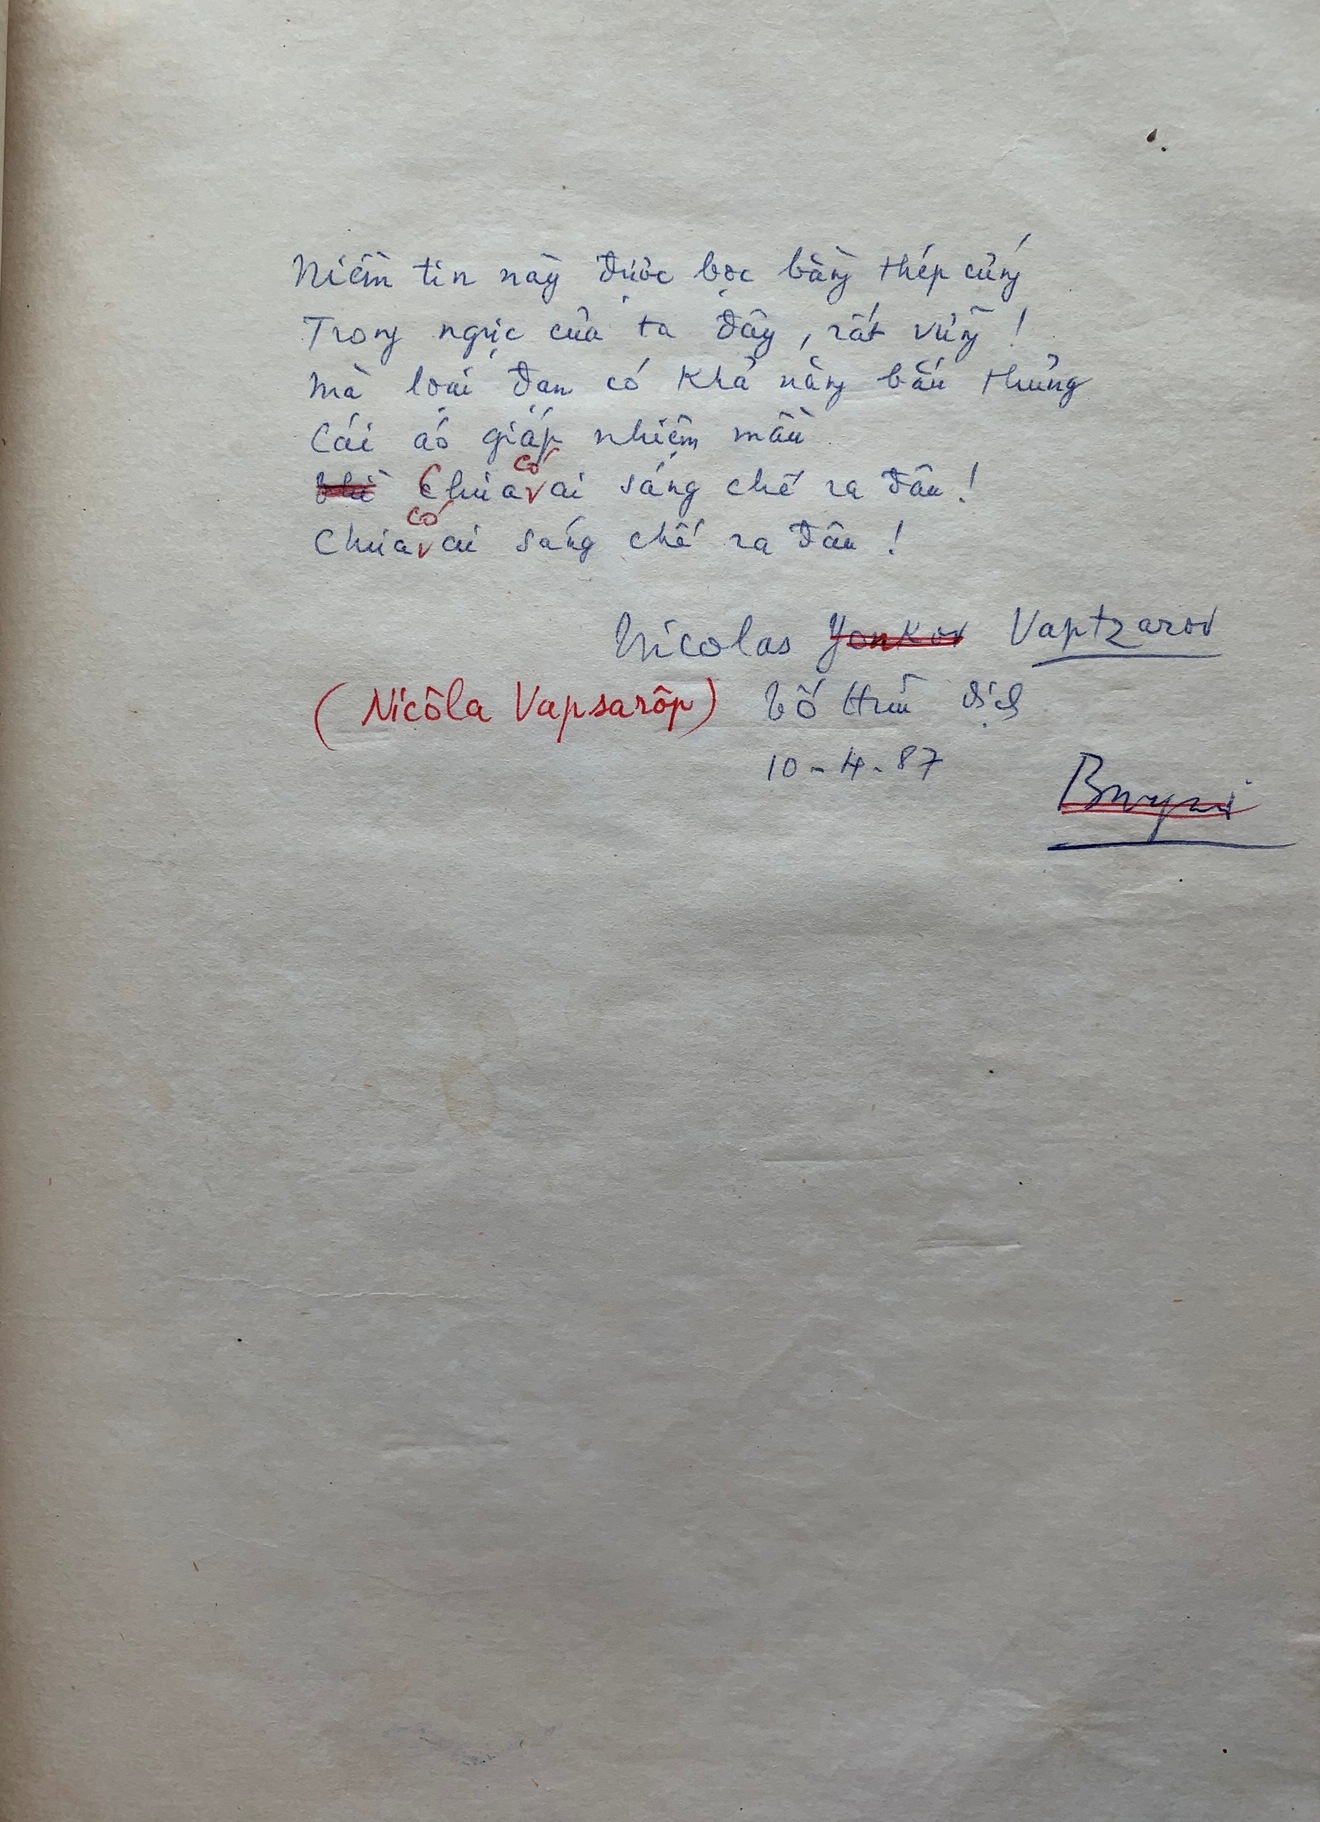 Niềm tin này được bọc bằng thép cứng
Trong ngực của ta đây, rất vững!
Mà loại đạn có khả năng bắn thủng
Cái áo giáp nhiệm mầu
Chưa có ai sáng chế ra đâu!
Chưa có ai sáng chế ra đâu!
Nicolas Yonkov Vaptzarov
(Nicôla Vapsarôp) Tố Hữu dịch
10-4-87